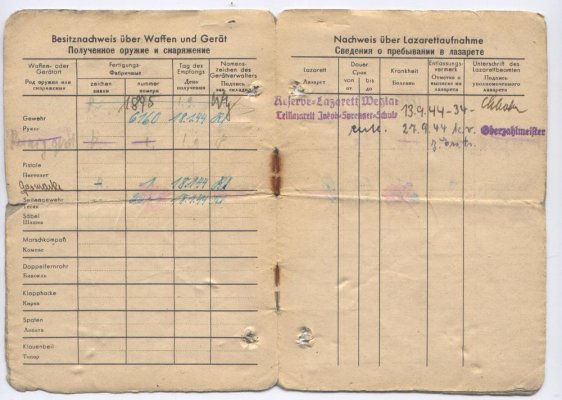 Besitznachweis über Waffen und Gerät
Полученное оружие и снаряжение
Waffen- oder
Gerätart
Род оружия или
снаряжения
Fertigungs-
Фабричные
zeichen
знаки
nummer
номера
Tag des
Empfangs
День
получения
Namens-
zeichen des
Geräteverwalters
Подпись
1895
Gewehr
Ружье
6160 18.1.44
Pistole
Пистолет
Gasmaske
1 18.1.44
Seitengewehr
Тесак
18.1.44
Säbel
Шашка
Marschkompaß
Компас
Doppelfernrohr
Бинокль
Klapphacke
Кирка
Spaten
Лопата
Klauenbeil
Топор
Nachweis über Lazarettaufnahme
Сведения о пребывании в лазарете
Lazarett
Лазарет
Dauer
Срок
von
от
bis
до
Krankheit
Болезнь
Entlassungs-
vermerk
Отметка о
выписке из
лазарета
Unterschrift des
Lazarettbeamten
Подпись
уполномоченного
лазарета
Reserve-Lazarett Wetzlar
Teillazarett Jakob-Sprenger-Schule
13.9.44 -34-
entl. 27.9.44 k.v.
Oberzahlmeister